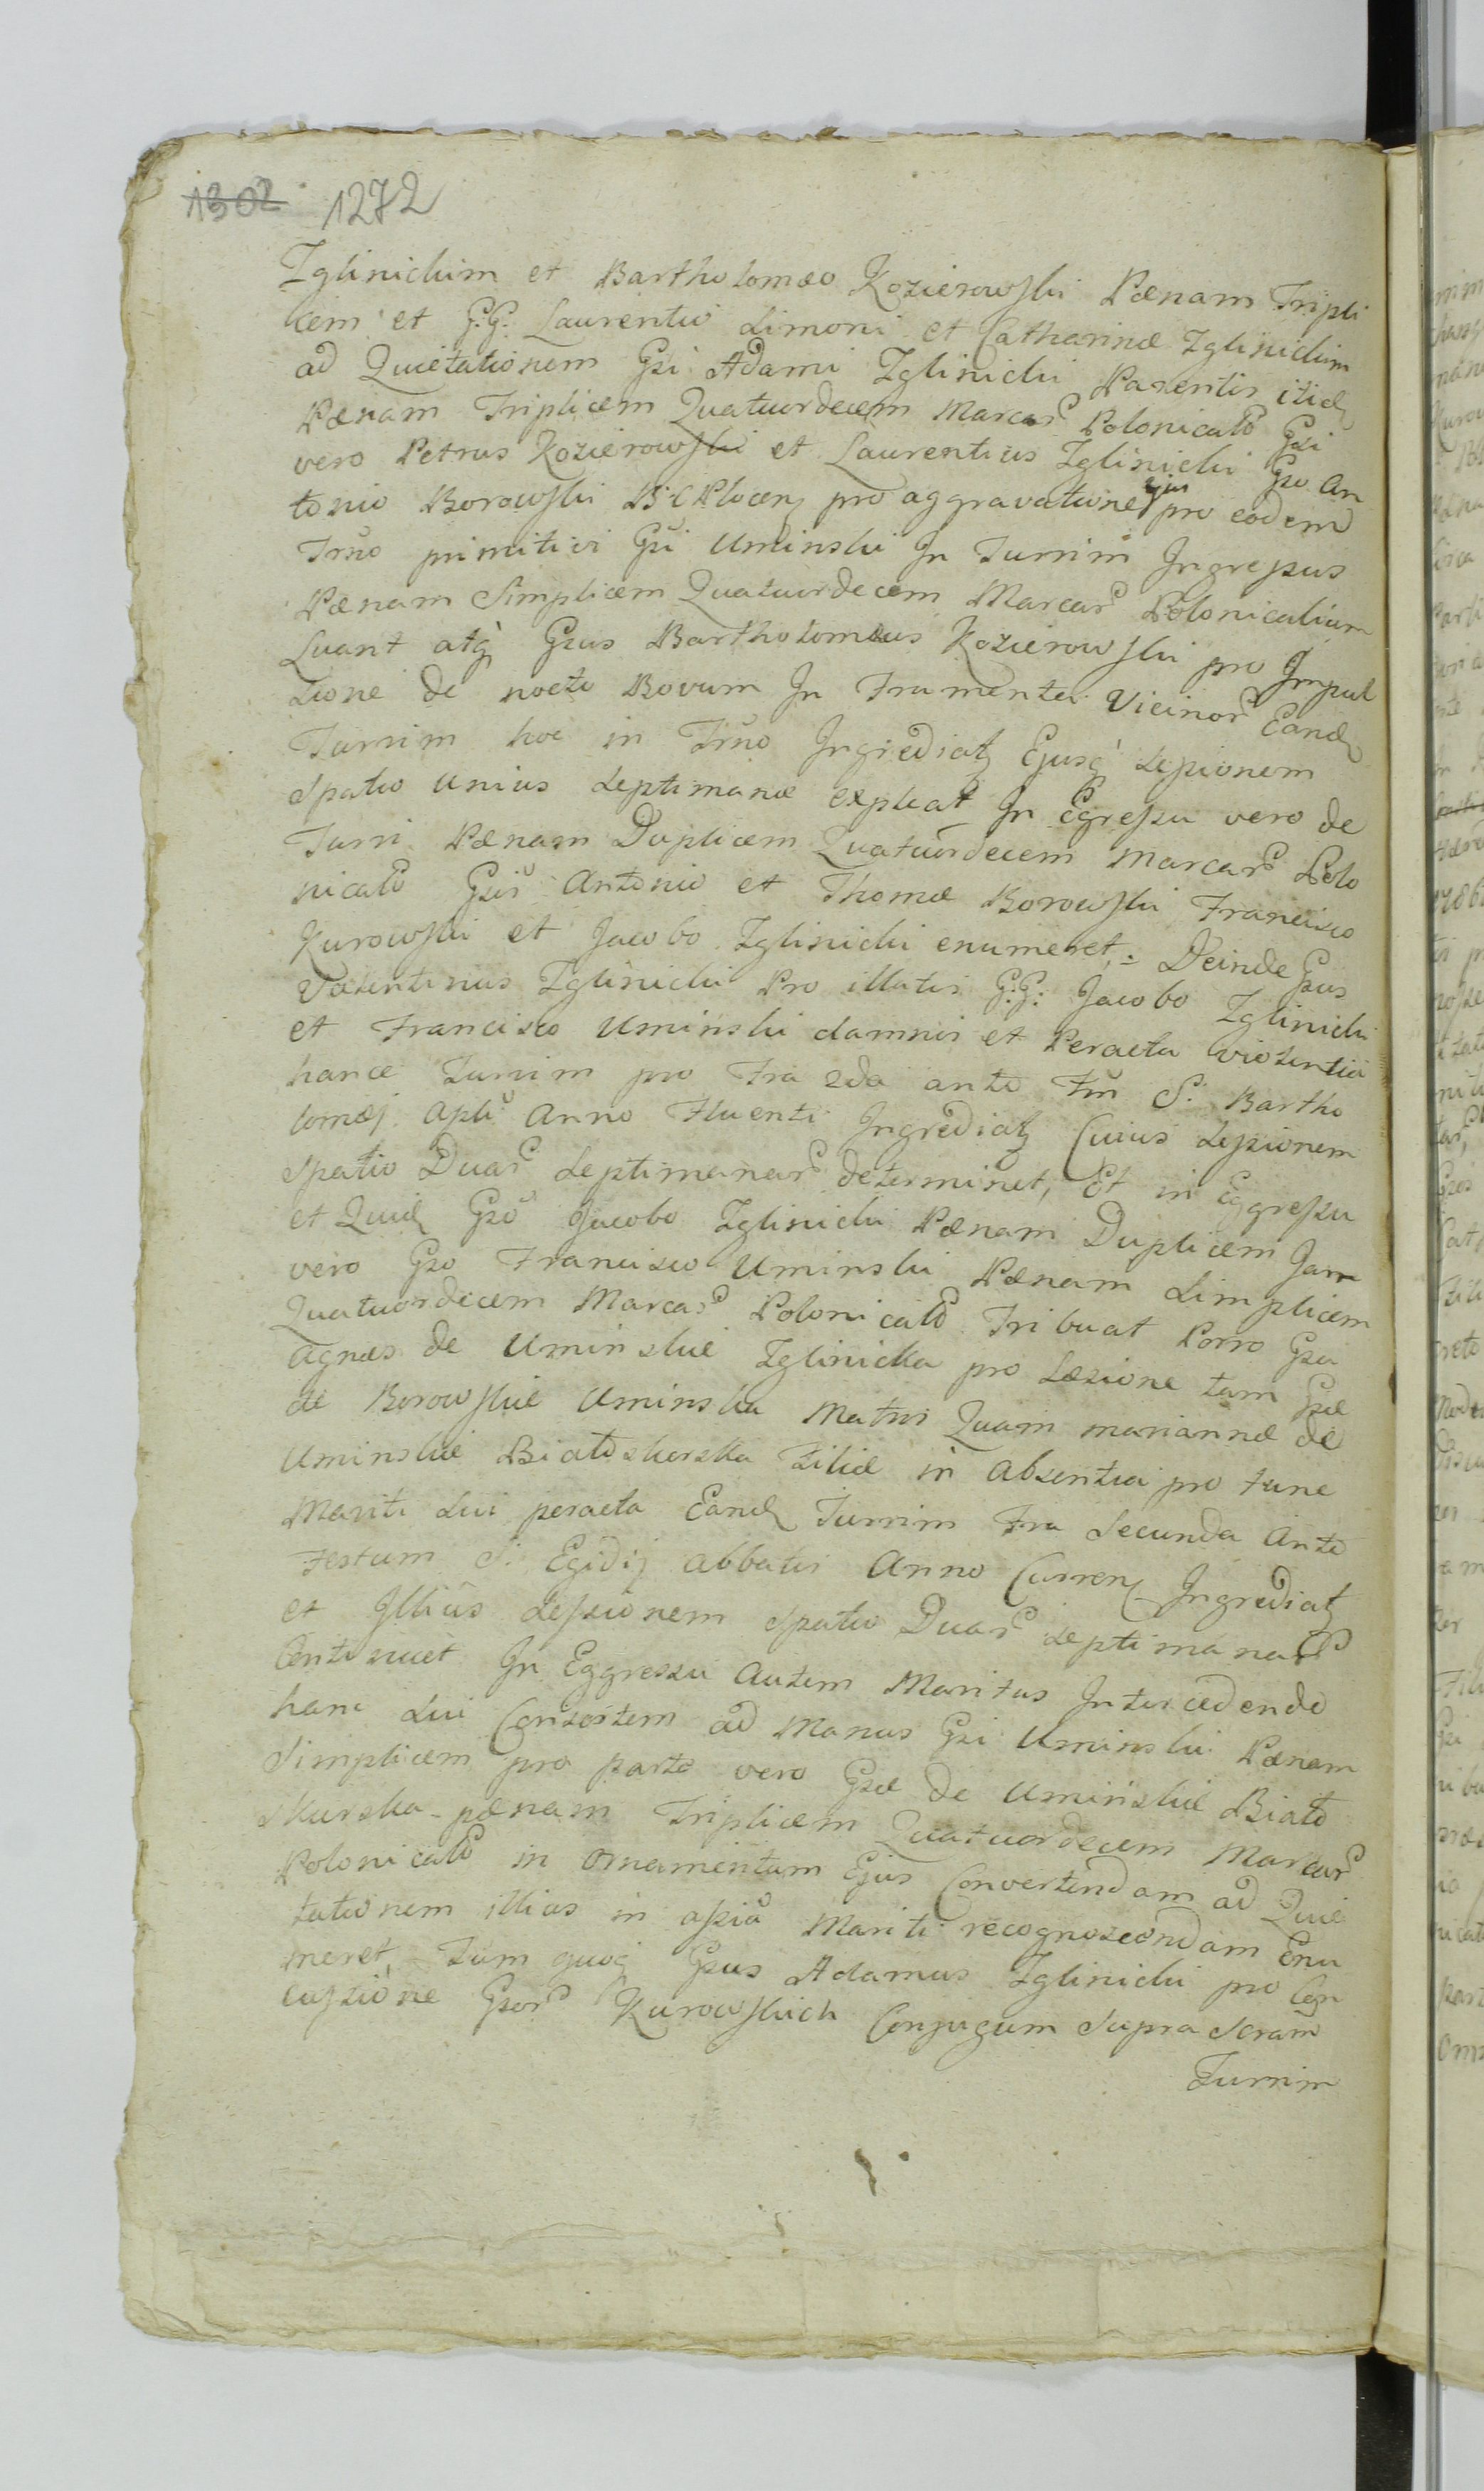 1302 1272
Zglinickim et Bartholomæo Kozierowski Pænam Tripli
cem et G.G. Laurentio Simoni et Catharinæ Zglinickim
ad Quietationem Gsi Adami Zglinicki Parentis itid
Pænam Triplicem Quatuordecem Marcar Polonicalo Gsi
vero Petrus Kozierowski et Laurentius Zglinicki Gso An
tonio Borowski B C Plocen pro aggravatione ejus pro eodem
Trno primitivi Gsi Uminski In Turrim Ingressus
Pænam Simplicem Quatuordecem Marcar Polonicalium
Luant atq Gsus Bartholomæus Kozierowski pro Impul
sione de nocte Bovum In Frumenta Vicinor Eand
Turrim hoc in Trno Ingrediatz Ejusq Sessionem
Spatio unius Septimanæ expleat In Egressu vero de
Turri Pænam Duplicem Quatuordecem Marcar Polo
nicalo Gsis Antonio et Thomæ Borowski Francisco
Kurowski et Jacobo Zglinicki enumeret, = Deinde Gsus
Valentinus Zglinicki Pro illatis G:G: Jacobo Zglinicki
et Francisco Uminski damnis et Peracta violentia
hance Turrim pro Fra 2da ante Fm S: Bartho
lomæj Apli Anno Fluenti Ingrediatz Cuius Sessionem
Spatio Duar Septimanar determinet, Et in Eggressu
et Quid Gso Jacobo Zglinicki Pænam Duplicem Jam
vero Gso Francisco Uminski Pænam Simplicem
Quatuordecem Marcar Polonicalo Tribuat Porro Gsa
Agnes de Uminskie Zglinicka pro Læsione tam Gsæ
de Borowskie Uminska Matris Quam mariannæ de
Uminskie Białoskorska Filiæ in absentia pro tunc
Mariti sui peracta Eand Turrim Fra Secunda Ante
Festum S: Egidij Abbatis Anno Curren Ingrediatz
et Illius Sessionem Spatio Duar Septimanar
Continuet In Eggressu Autem Maritus Intercedendo
hanc sui Consortem ad Manus Gsi Uminski Pænam
Simplicem pro parte vero Gsæ de Uminskie Biało
skurska pænam Triplicem Quatuordecem Marcar
Polonicalo in Ornamentum Ejus Convertendam ad Quie
tationem illius in assia Mariti recognoscendam Enu
meret, Tum quoq Gsus Adamus Zglinicki pro Con
cussione Gsor Kurowskich Conjugum Supra Scram
Turrim